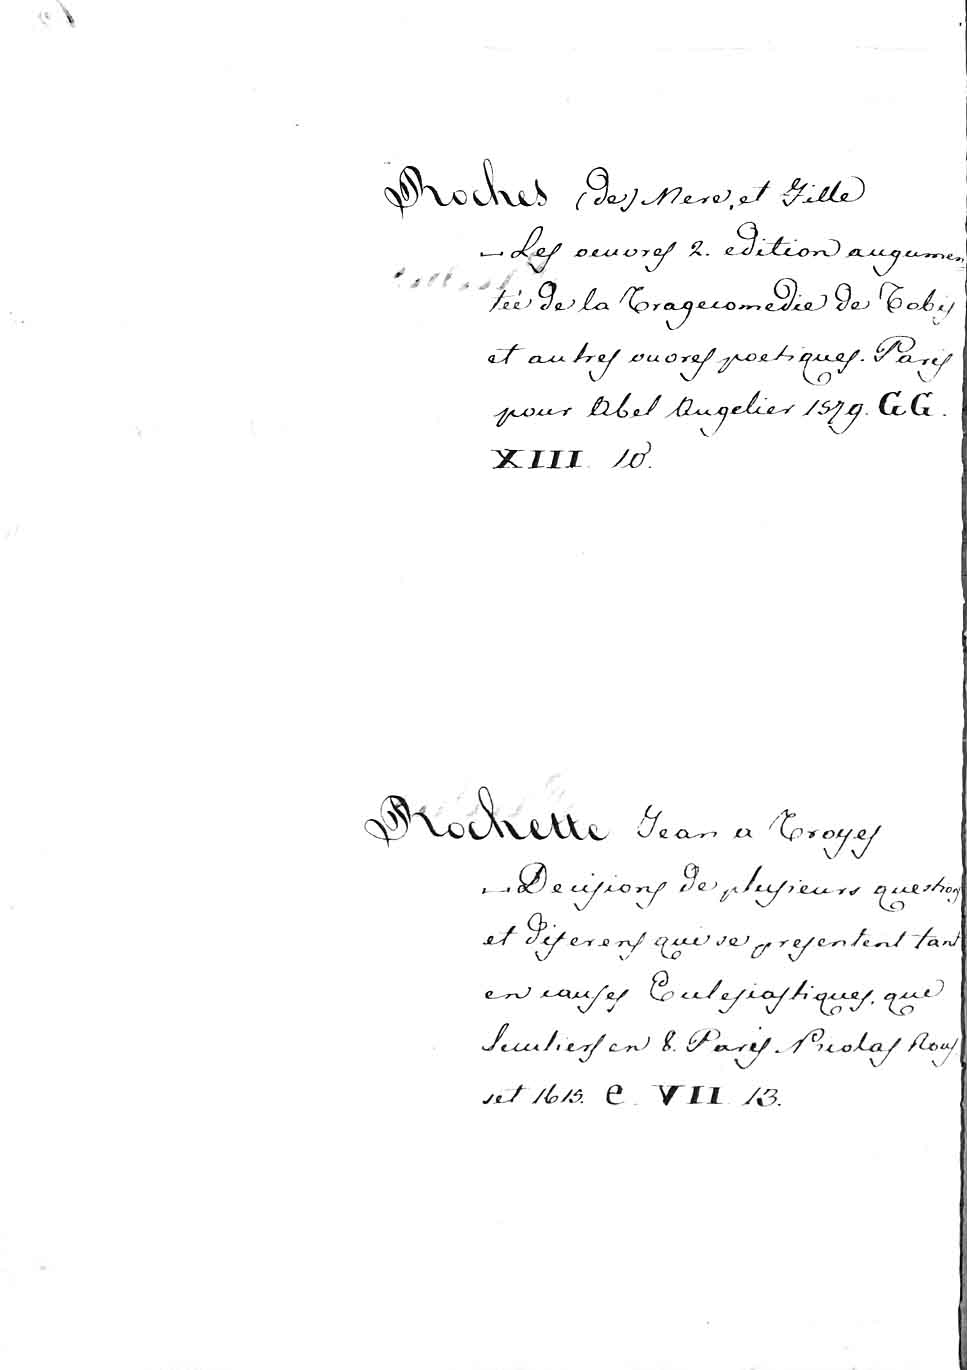 Roches (de) Mere, et Fille
— Les oeuvres 2. edition augumen
tée de la Tragecomedie de Tobis
et autres ouvres poetiques. Paris
pour Abel Angelier 1579. GG.
XIII. 10.
Rochette Jean a Troyes
— Decisions de plusieurs questions
et diferens qui se presentent tant
en causes Eclesiastiques, que
en 8. Paris Nicolas Rous
set 1615. e. VII. 13.